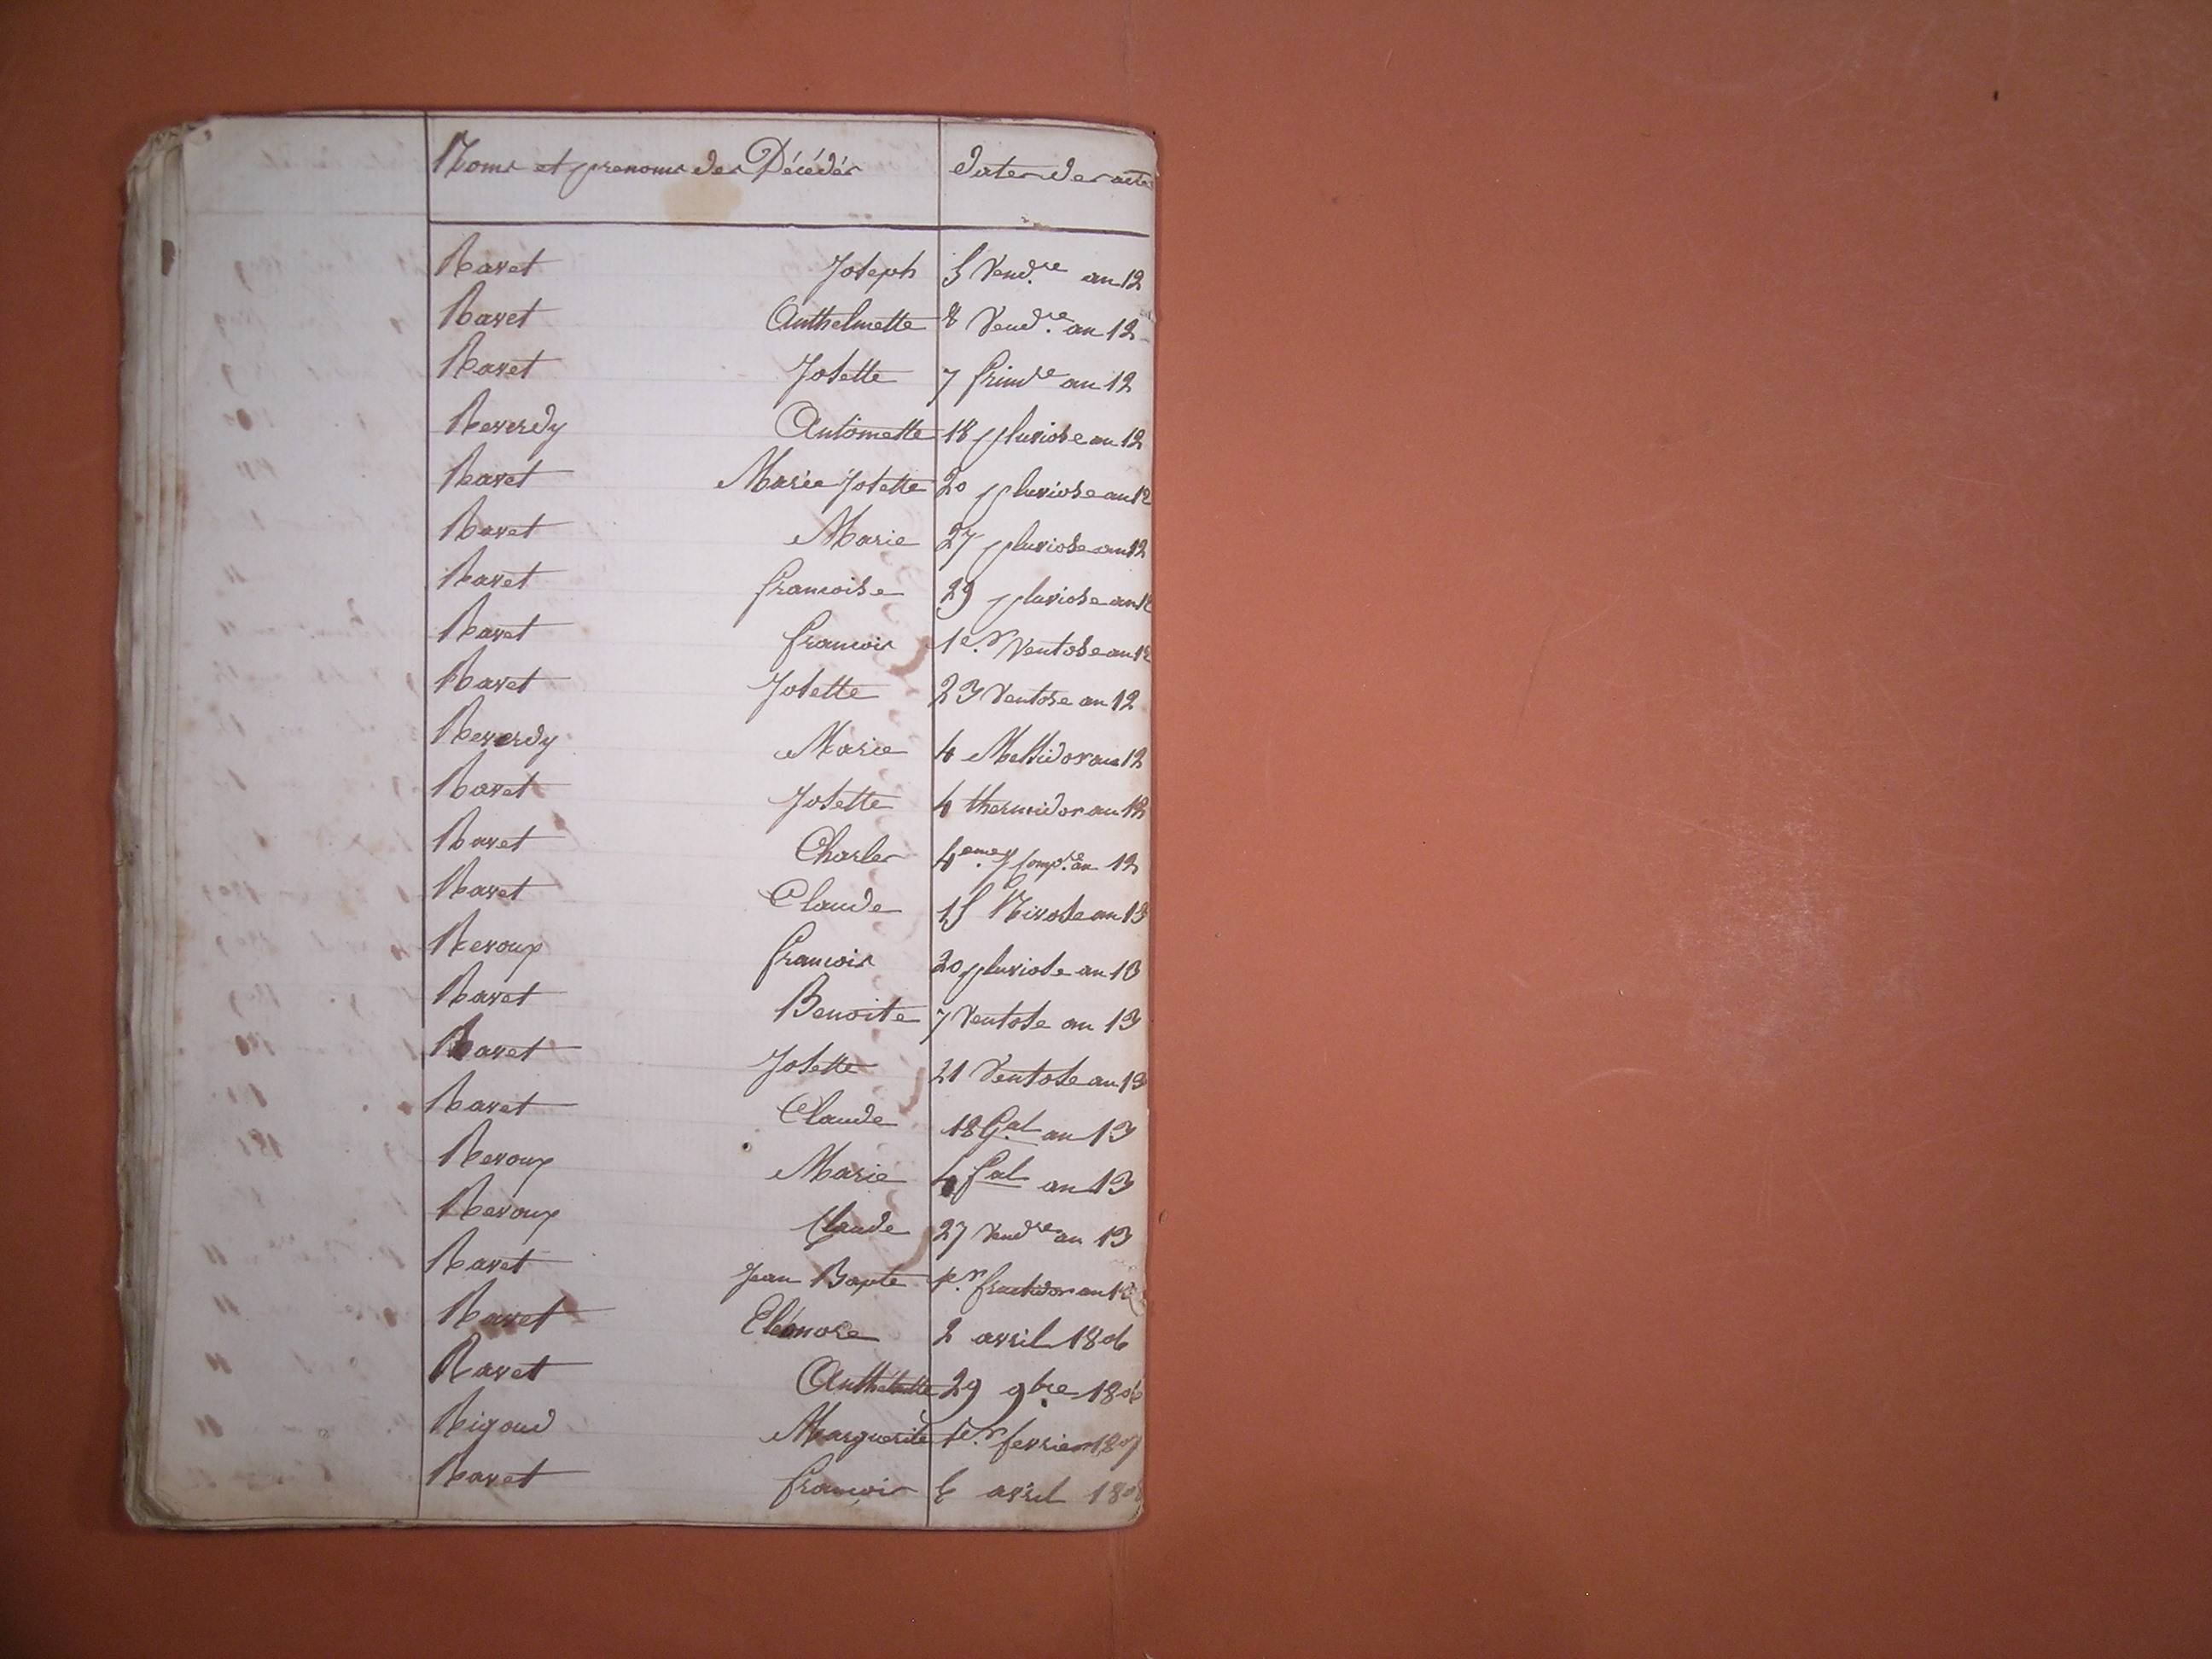 Noms et prenoms des Décédés dates des actes
Ravet Joseph 5 Vend.re an 12
Ravet Anthelmette 8 Vend.re an 12
Ravet Josette 7 frim.re an 12
Reverdy Antoinette 18 pluviose an 12
Ravet Marie Josette 20 pluviose an 12
Ravet Marie 27 pluviose an 12
Ravet francoise 29 pluviose an 12
Ravet francois 1er Ventose an 12
Ravet Josette 23 Ventose an 12
Reverdy Marie 4 Messidor an 12
Ravet Josette 4 thermidor an 12
Ravet Charles 4eme Comp.re an 12
Ravet Claude 15 Nivose an 13
Reroux francois 20 pluviose an 13
Ravet Benoite 7 Ventose an 13
Ravet Josette 21 Ventose an 13
Ravet Claude 18 G.al an 13
Reroux Marie 4 f.al an 13
Reroux Claude 27 Vend.re an 13
Ravet Jean Bapte 1er fructidor an 13
Ravet Eléonore 2 avril 1806
Ravet 29 9bre 1806
Rigoud Marguerite 1er fevrier 1807
Ravet francois 6 avril